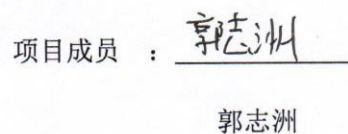 项目成员 ：郭志洲
郭志洲